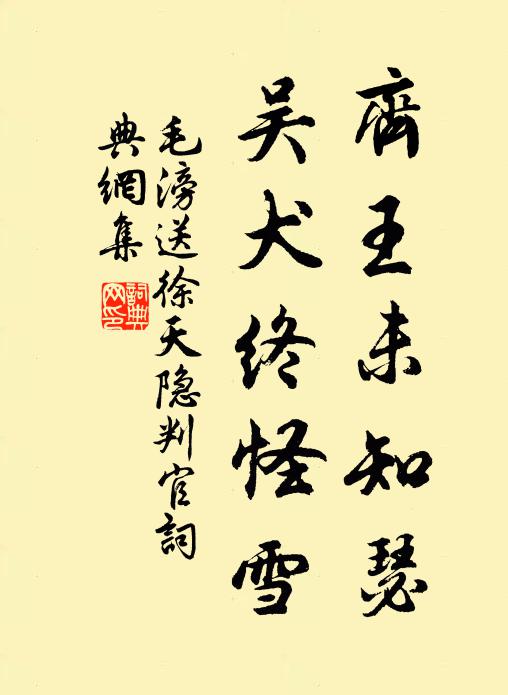 齊王未知瑟
吳犬終怪雪
毛滂送徐天隐判官詞
典網集
詞典網印